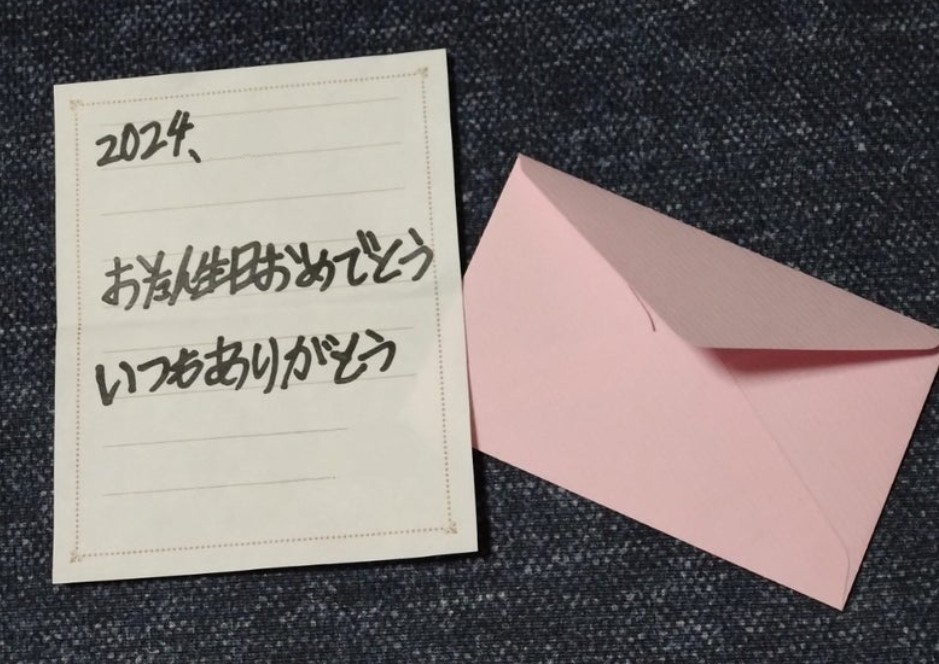 2024、
おたん生日おめでとう
いつもありがとう